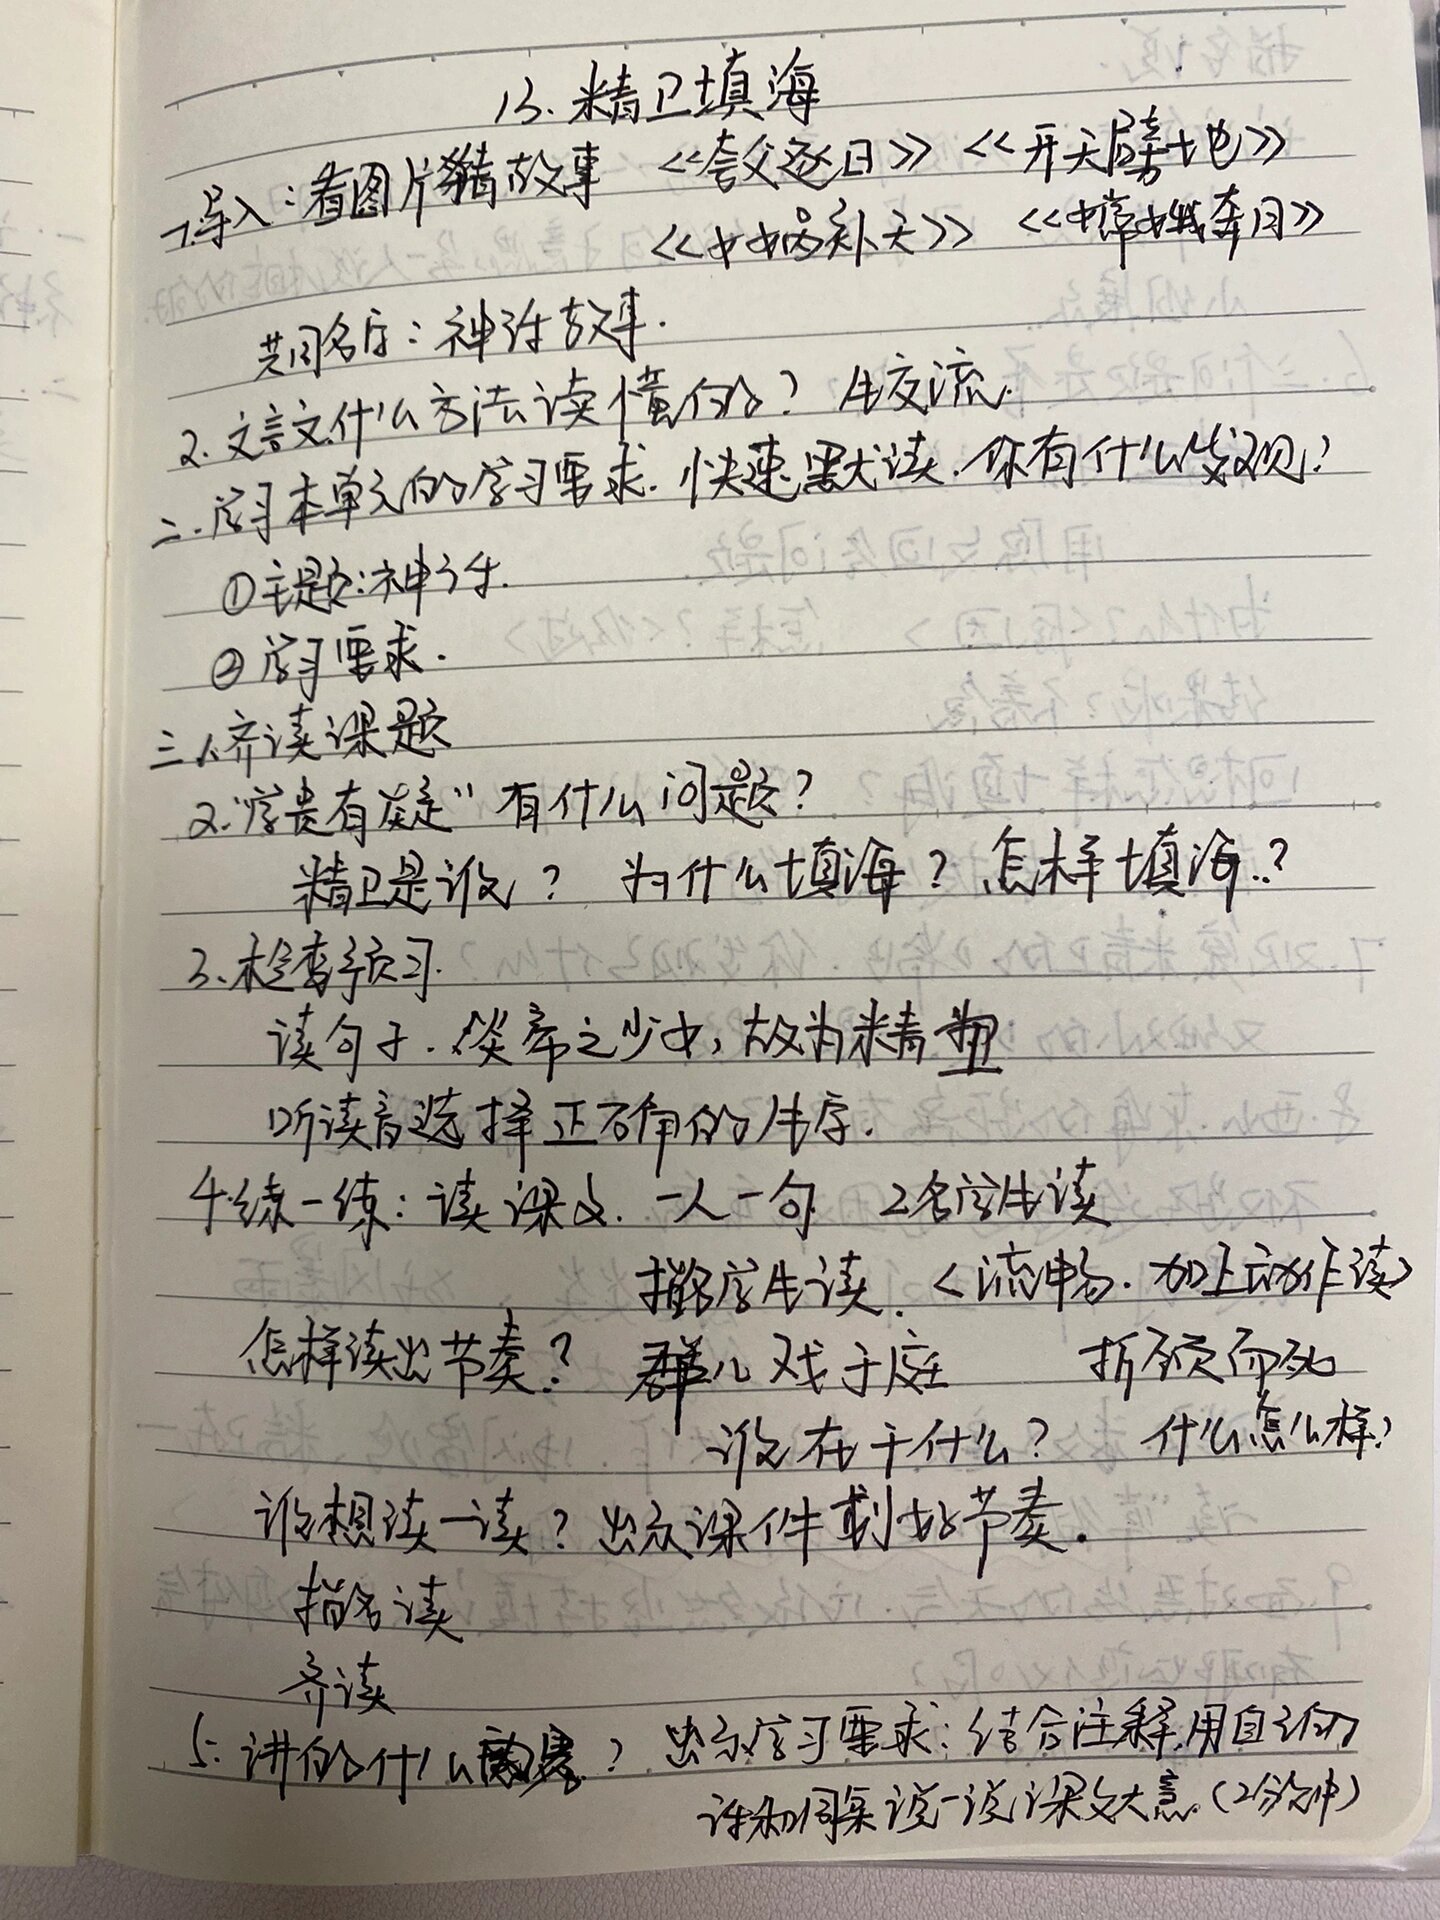 13. 精卫填海
一、导入：看图片猜故事 《夸父逐日》 《开天劈地》
《女娲补天》 《嫦娥奔月》
共同名字：神话故事.
2. 文言文什么方法读懂的？ 生交流.
二. 学习本单元的学习要求. 快速默读. 你有什么发现？
①主题：神话.
②学习要求.
三、1.齐读课题
2.“学贵有疑” 有什么问题？
精卫是谁？ 为什么填海？ 怎样填海？
3. 检查预习.
读句子. 炎帝之少女，故为精卫
听读音选择正确的生字.
4.练一练：读课文. 一人一句 2名学生读
指名学生读. <流畅. 加上动作读>
怎样读出节奏？ 群儿戏于庭 折颈而死
谁在干什么？ 什么怎么样？
谁想读一读？出示课件划好节奏.
指名读
齐读
5. 讲的什么故事？ 出示学习要求：结合注释，用自己的
话和同桌说一说课文大意.（2分钟）